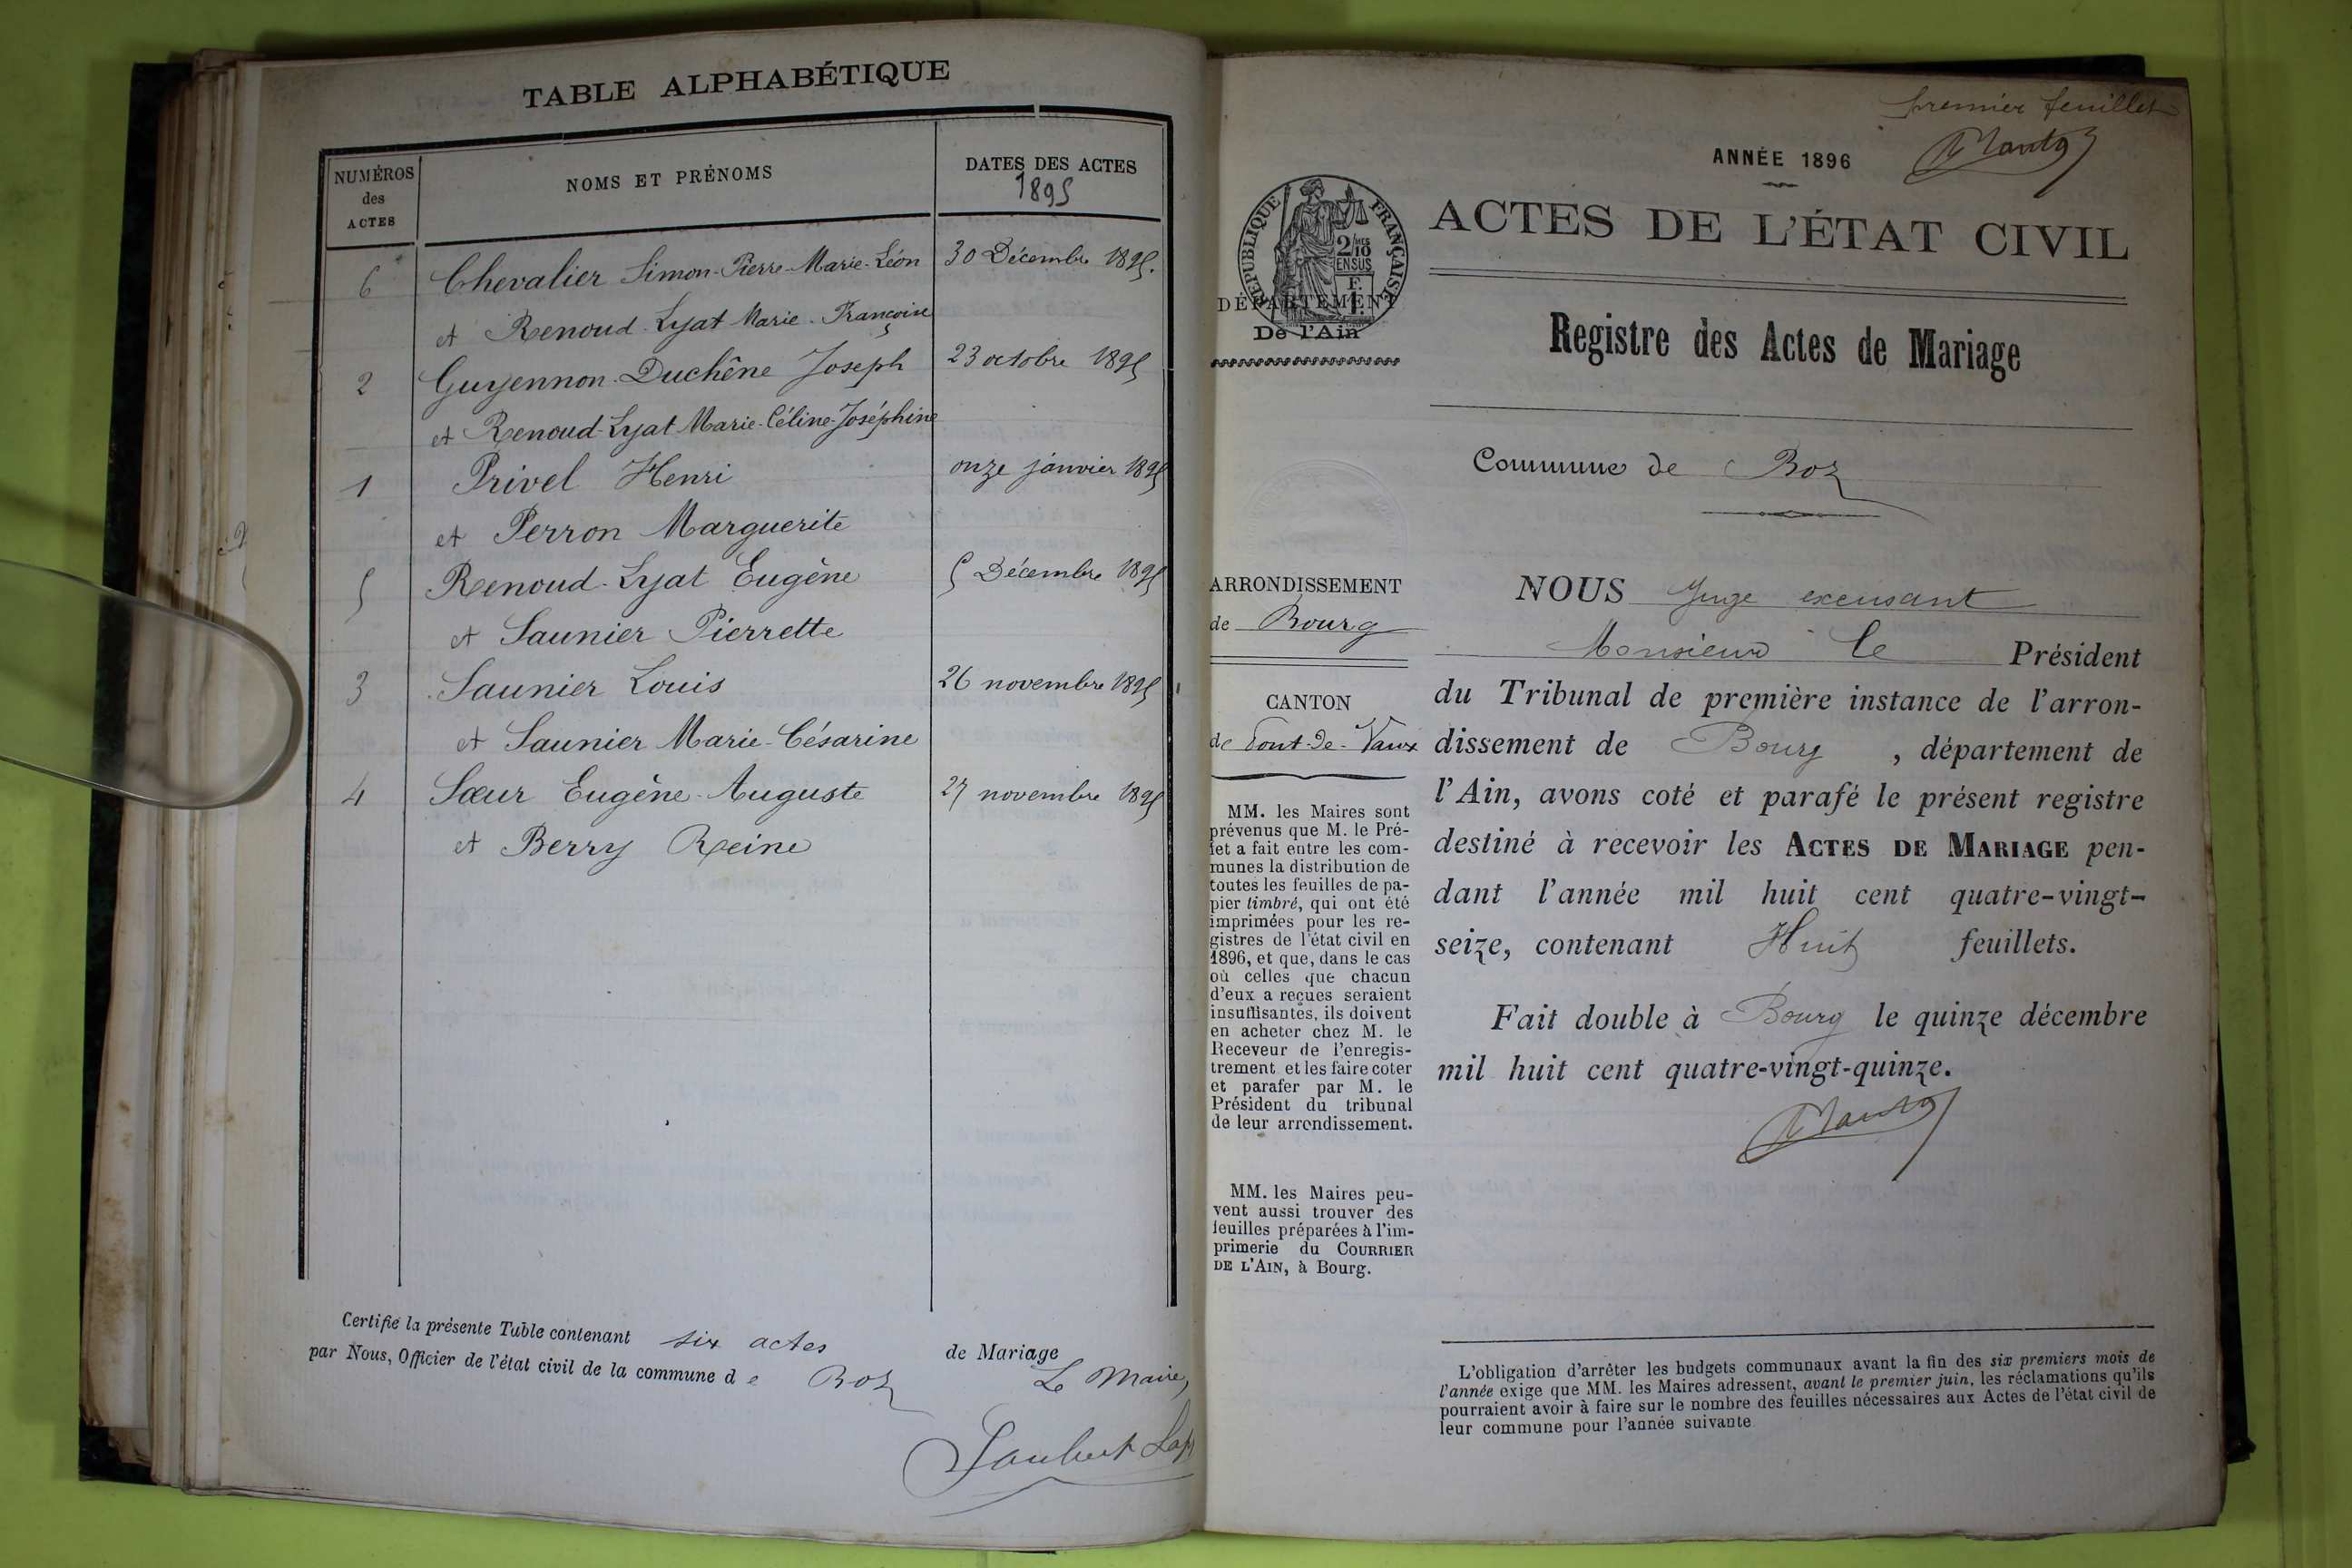 TABLE ALPHABÉTIQUE
NUMÉROS
des
ACTES
NOMS ET PRÉNOMS
DATES DES ACTES
1895
6 Chevalier Simon-Pierre-Marie-Léon 30 Décembre 1895.
et Renoud-Lyat Marie-Françoise
2 Guyennon-Duchêne Joseph 23 octobre 1895
et Renoud-Lyat Marie-Céline-Joséphine
1 Privel Henri onze janvier 1895
et Perron Marguerite
5 Renoud-Lyat Eugène 5 Décembre 1895
et Saunier Pierrette
3 Saunier Louis 26 novembre 1895
et Saunier Marie-Césarine
4 Sœur Eugène-Auguste 27 novembre 1895
et Berry Reine
Certifié la présente Table contenant six actes de Mariage
par Nous, Officier de l'état civil de la commune de Boz
Le Maire,
premier feuillet
ANNÉE 1896
RÉPUBLIQUE FRANÇAISE
2/10 MES
EN SUS
F.
1.
DÉPARTEMENT
De l'Ain
ACTES DE L'ÉTAT CIVIL
Registre des Actes de Mariage
Commune de Boz
ARRONDISSEMENT
de Bourg
CANTON
de Pont-de-Vaux
MM. les Maires sont
prévenus que M. le Pré-
fet a fait entre les com-
munes la distribution de
toutes les feuilles de pa-
pier timbré, qui ont été
imprimées pour les re-
gistres de l'état civil en
1896, et que, dans le cas
où celles que chacun
d'eux a reçues seraient
insuffisantes, ils doivent
en acheter chez M. le
Receveur de l'enregis-
trement et les faire coter
et parafer par M. le
Président du tribunal
de leur arrondissement.
MM. les Maires peu-
vent aussi trouver des
feuilles préparées à l'im-
primerie du COURRIER
DE L'AIN, à Bourg.
NOUS Juge excusant
Monsieur le Président
du Tribunal de première instance de l'arron-
dissement de Bourg, département de
l'Ain, avons coté et parafé le présent registre
destiné à recevoir les ACTES DE MARIAGE pen-
dant l'année mil huit cent quatre-vingt-
seize, contenant Huit feuillets.
Fait double à Bourg le quinze décembre
mil huit cent quatre-vingt-quinze.
L'obligation d'arrêter les budgets communaux avant la fin des six premiers mois de
l'année exige que MM. les Maires adressent, avant le premier juin, les réclamations qu'ils
pourraient avoir à faire sur le nombre des feuilles nécessaires aux Actes de l'état civil de
leur commune pour l'année suivante